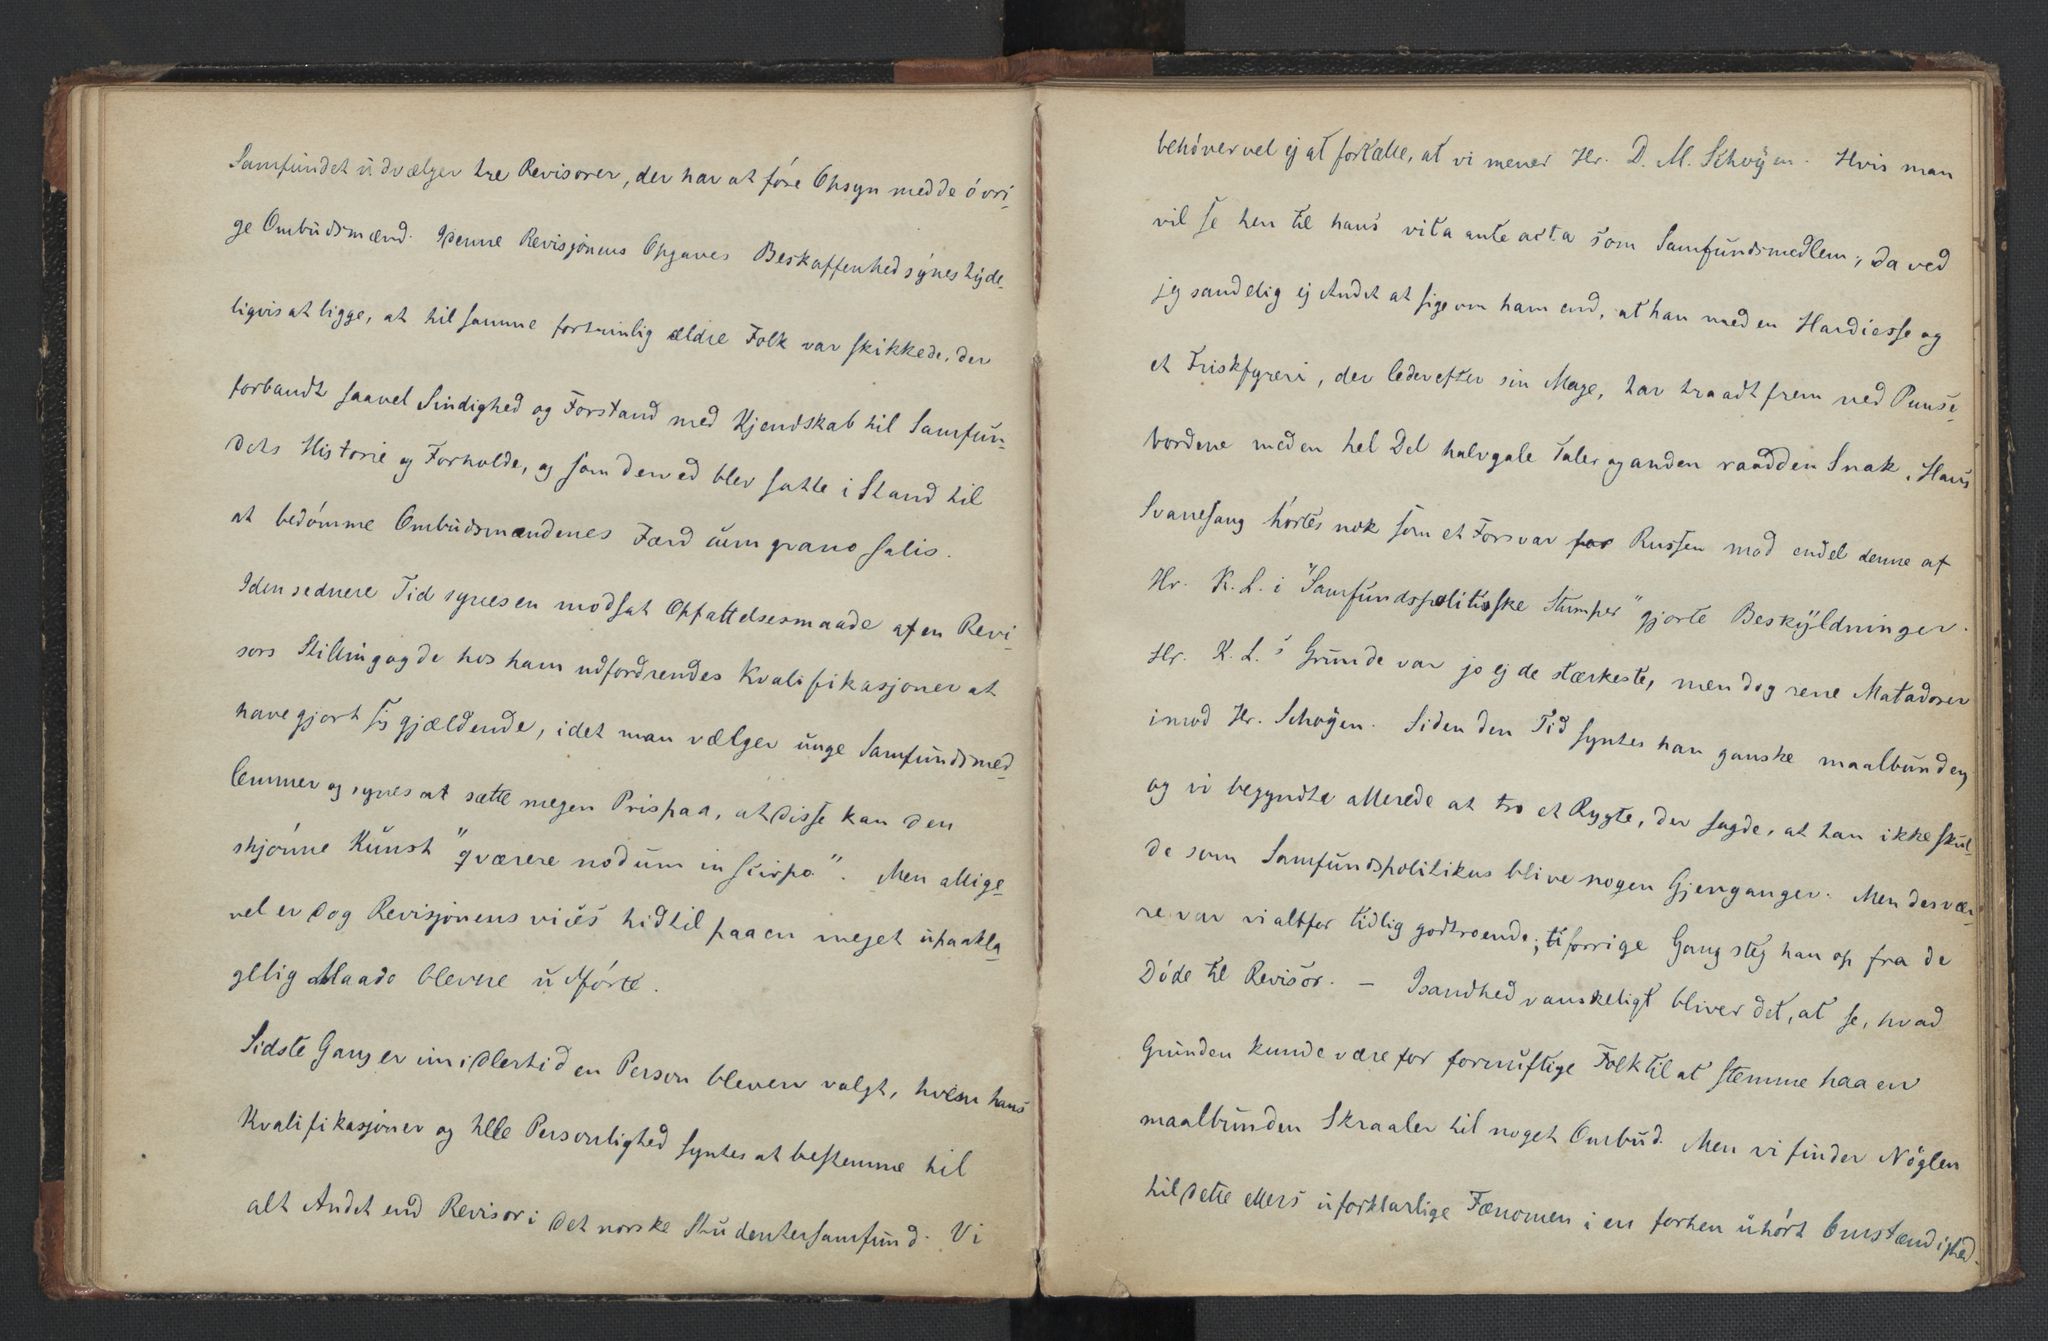 Samfundet udvælger tre Revisorer, der har at føre Opsyn med de øvri-
ge Ombudsmænd. I denne Revisjonens Opgaves Beskaffenhed synes tyde-
ligvis at ligge, at til samme fortrinlig ældre Folk var skikkede, der
forbandt saavel Sindighed og Forstand med Kjendskab til Samfun-
dets Historie og Forholde, og som derved blev satte i Stand til
at bedømme Ombudsmændenes Færd cum grano salis.
I den sednere Tid synes en modsat Opfattelsesmaade af en Revi-
sors Stilling og de hos ham udfordrendes Kvalifikasjoner at
have gjort sig gjældende, idet man vælger unge Samfundsmed-
lemmer og synes at sætte megen Pris paa, at disse kan den
skjønne Kunst "qværere nodum in scirpo". Men allige-
vel er dog Revisjonens vices hidtil paa en meget upaakla-
gelig Maade blevne udførte.
Sidste Gang er imidlertid en Person bleven valgt, hvem hans
Kvalifikasjoner og hele Personlighed syntes at bestemme til
alt Andet end Revisor i det norske Studentersamfund. Vi
behøver vel ej at fortælle, at vi mener Hr. D. M. Schøyen. Hvis man
vil se hen til hans vita ante acta som Samfundsmedlem, da ved
jeg sandelig ej Andet at sige om ham end, at han med en Hardiesse og
et Friskfyreri, der leder efter sin Mage, har traadt frem ved Punse-
bordene med en hel Del halvgale Taler og anden raadden Snak. Hans
Svanesang hørtes nok som et Forsvar for Russen mod endel denne af
Hr. K. L. i "Samfundspolitiske Stumper" gjorte Beskyldninger.
Hr. K. L.'s Grunde var jo ej de stærkeste, men dog rene Matadorer
imod Hr. Schøyen. Siden den Tid syntes han ganske maalbunden,
og vi begyndte allerede at tro et Rygte, der sagde, at han ikke skul-
de som Samfundspolitikus blive nogen Gjenganger. Men desvær-
re var vi altfor tidlig godtroende; ti forrige Gang steg han op fra de
Døde til Revisor. – I sandhed vanskeligt bliver det, at se, hvad
Grunden kunde være for fornuftige Folk til at stemme paa en
maalbunden Skraaler til noget Ombud. Men vi finder Nøglen
til dette ellers uforklarlige Fænomen i en forhen uhørt Omstændighed.